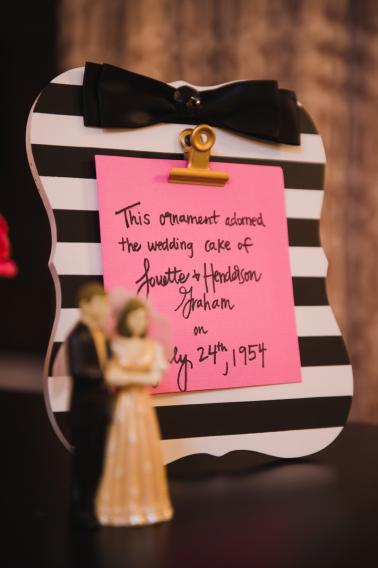 This ornament adorned
the wedding cake of
Lovette & Henderson
Graham
on
ly, 24th, 1954